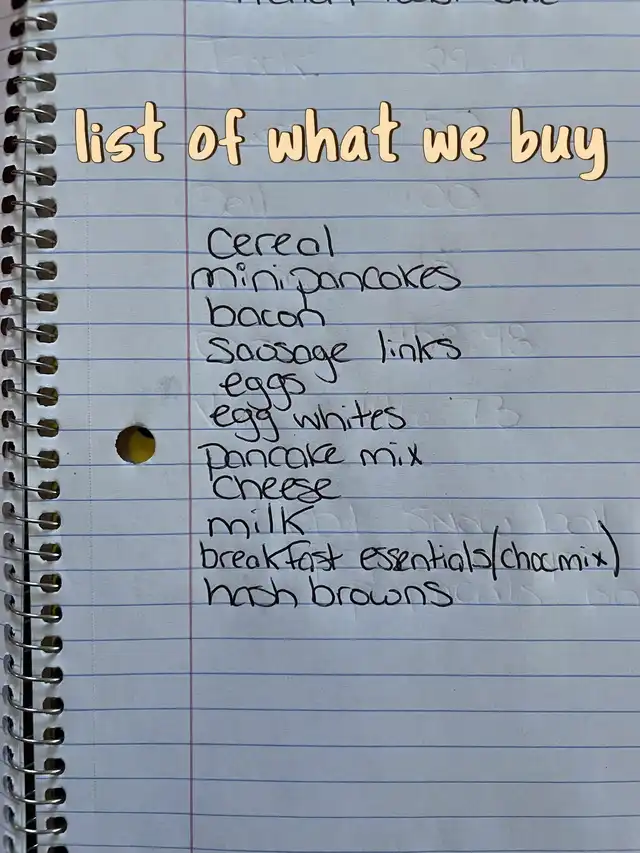 list of what we buy
cereal
mini pancakes
bacon
sausage links
eggs
egg whites
pancake mix
cheese
milk
breakfast essentials(choc mix)
hash browns